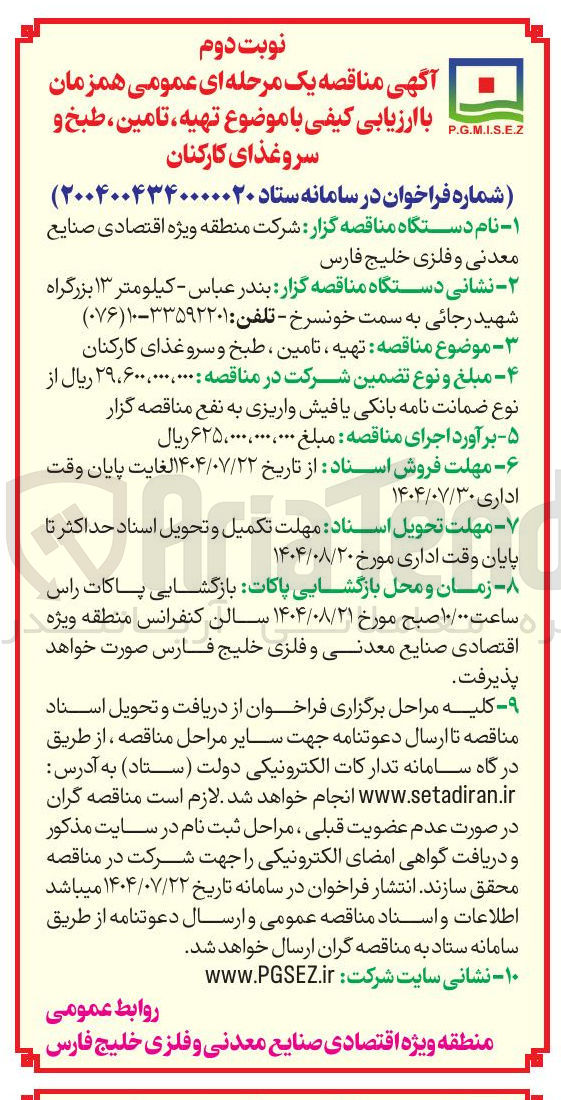 نوبت دوم
آگهی مناقصه یک مرحله ای عمومی همزمان
با ارزیابی کیفی با موضوع تهیه، تامین، طبخ و
سرو غذای کارکنان
P.G.M.I.S.E.Z
(شماره فراخوان در سامانه ستاد ۲۰۰۴۰۰۴۳۴۰۰۰۰۰۲۰)
۱- نام دستگاه مناقصه گزار: شرکت منطقه ویژه اقتصادی صنایع
معدنی و فلزی خلیج فارس
۲- نشانی دستگاه مناقصه گزار: بندر عباس - کیلومتر ۱۳ بزرگراه
شهید رجائی به سمت خونسرخ - تلفن: ۳۳۵۹۲۲۰۱-۱۰ (۰۷۶)
۳- موضوع مناقصه: تهیه، تامین، طبخ و سرو غذای کارکنان
۴- مبلغ و نوع تضمین شرکت در مناقصه: ۲۹,۶۰۰,۰۰۰,۰۰۰ ریال از
نوع ضمانت نامه بانکی یا فیش واریزی به نفع مناقصه گزار
۵- برآورد اجرای مناقصه: مبلغ ۶۲۵,۰۰۰,۰۰۰,۰۰۰ ریال
۶- مهلت فروش اسناد: از تاریخ ۱۴۰۴/۰۷/۲۲ لغایت پایان وقت
اداری ۱۴۰۴/۰۷/۳۰
۷- مهلت تحویل اسناد: مهلت تکمیل و تحویل اسناد حداکثر تا
پایان وقت اداری مورخ ۱۴۰۴/۰۸/۲۰
۸- زمان و محل بازگشایی پاکات: بازگشایی پاکات راس
ساعت ۱۰/۰۰ صبح مورخ ۱۴۰۴/۰۸/۲۱ سالن کنفرانس منطقه ویژه
اقتصادی صنایع معدنی و فلزی خلیج فارس صورت خواهد
پذیرفت.
۹- کلیه مراحل برگزاری فراخوان از دریافت و تحویل اسناد
مناقصه تا ارسال دعوتنامه جهت سایر مراحل مناقصه، از طریق
درگاه سامانه تدارکات الکترونیکی دولت (ستاد) به آدرس:
www.setadiran.ir انجام خواهد شد. لازم است مناقصه گران
در صورت عدم عضویت قبلی، مراحل ثبت نام در سایت مذکور
و دریافت گواهی امضای الکترونیکی را جهت شرکت در مناقصه
محقق سازند. انتشار فراخوان در سامانه تاریخ ۱۴۰۴/۰۷/۲۲ میباشد
اطلاعات و اسناد مناقصه عمومی و ارسال دعوتنامه از طریق
سامانه ستاد به مناقصه گران ارسال خواهد شد.
۱۰- نشانی سایت شرکت: www.PGSEZ.ir
روابط عمومی
منطقه ویژه اقتصادی صنایع معدنی و فلزی خلیج فارس